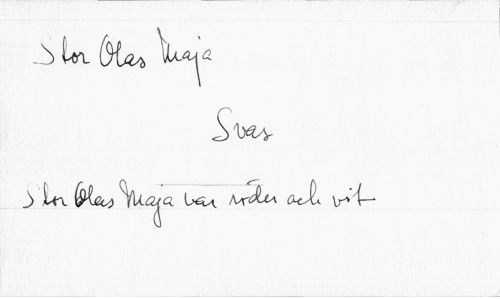 Stor Olas Maja
Svar
Stor Olas Maja var röder och vit